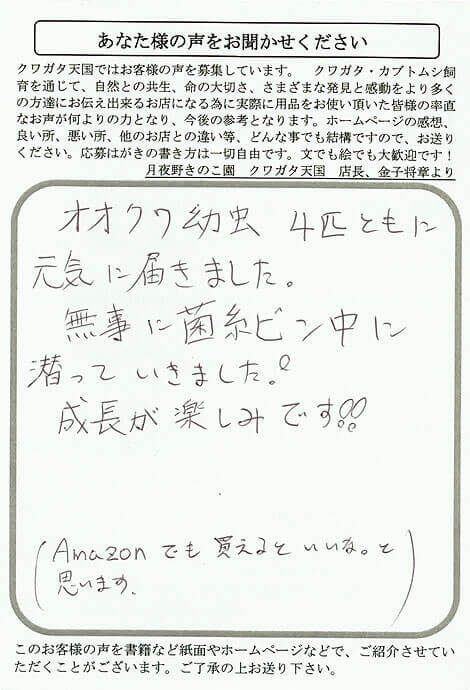 あなた様の声をお聞かせください
クワガタ天国ではお客様の声を募集しています。　クワガタ・カブトムシ飼
育を通じて、自然との共生、命の大切さ、さまざまな発見と感動をより多く
の方達にお伝え出来るお店になる為に実際に用品をお使い頂いた皆様の率直
なお声が何よりの力となり、今後の参考となります。ホームページの感想、
良い所、悪い所、他のお店との違い等、どんな事でも結構ですので、お送り
ください。応募はがきの書き方は一切自由です。文でも絵でも大歓迎です！
月夜野きのこ園　クワガタ天国　店長、金子将章より
オオクワ幼虫 4匹ともに
元気に届きました。
無事に菌糸ビン中に
潜っていきました。!
成長が楽しみです!!
(Amazonでも買えるといいな。と
思います。)
このお客様の声を書籍など紙面やホームページなどで、ご紹介させてい
ただくことがございます。ご了承の上お送り下さい。